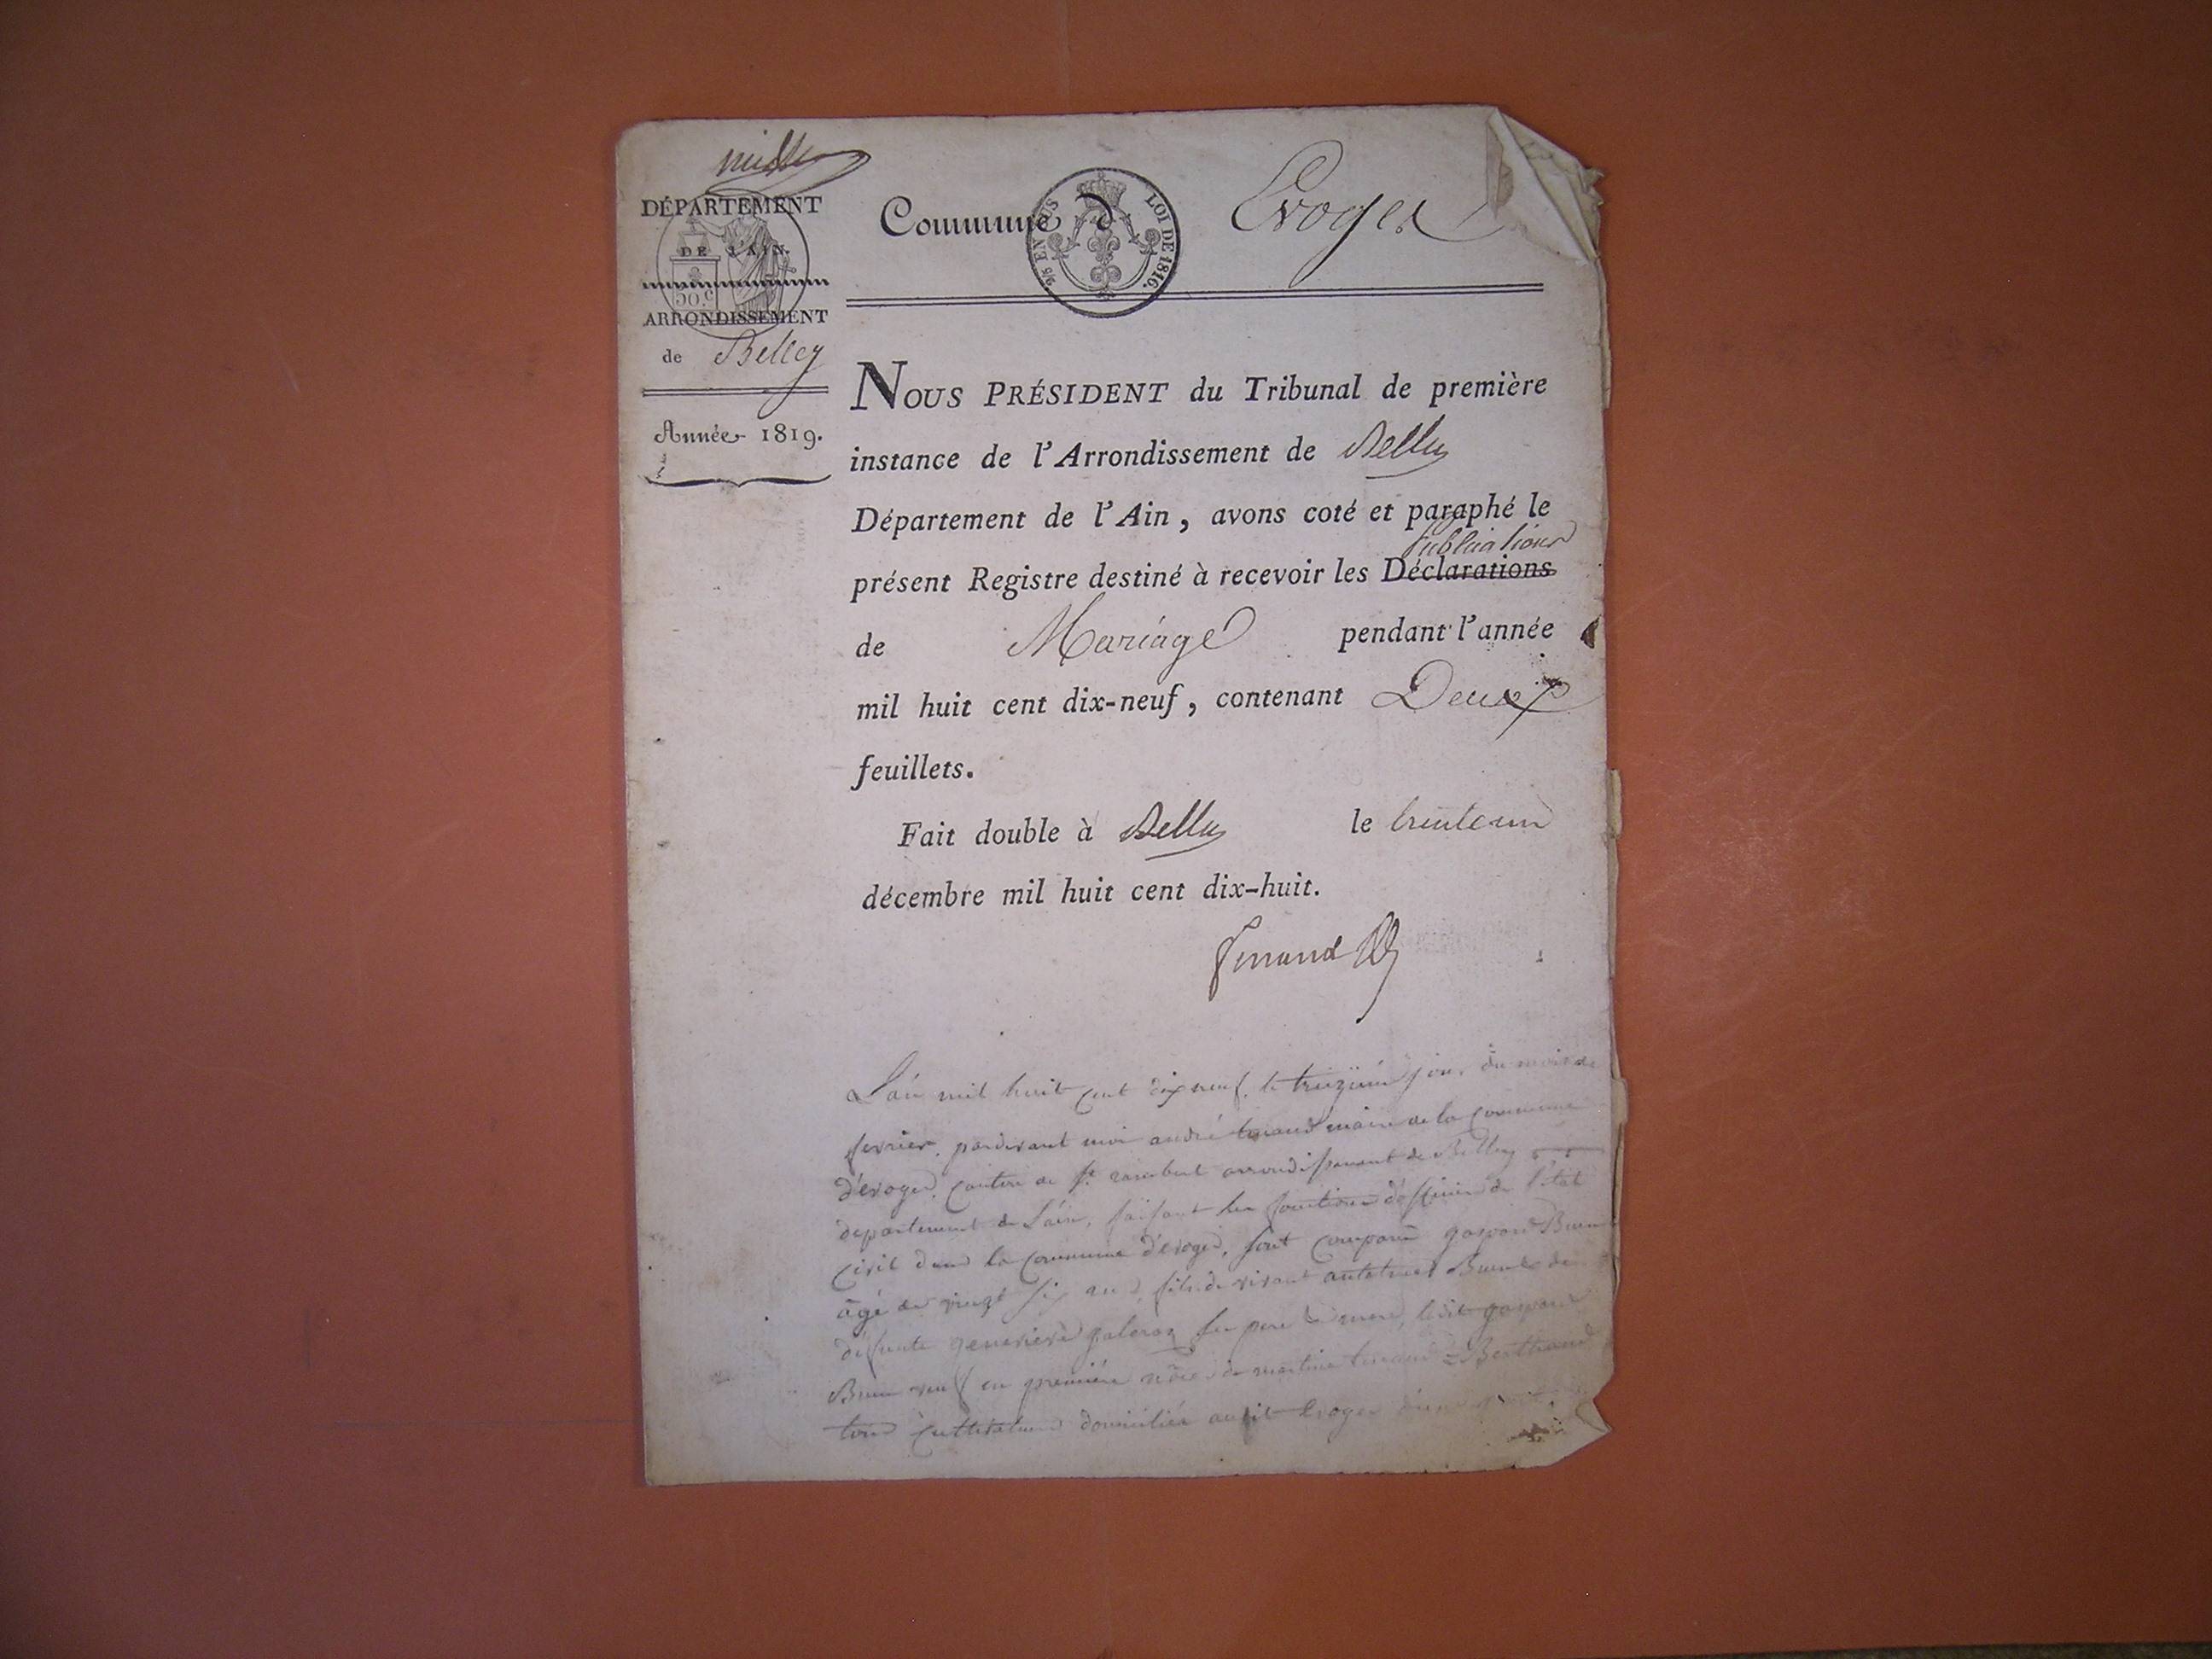 DÉPARTEMENT
DE L'AIN.
50.c
ARRONDISSEMENT
de Belley
Année 1819.
Commune d Evoges
EN SUS
LOI DE 1816.
NOUS PRÉSIDENT du Tribunal de première
instance de l'Arrondissement de Belley
Département de l'Ain, avons coté et paraphé le
publications
présent Registre destiné à recevoir les Déclarations
de Mariage pendant l'année
mil huit cent dix-neuf, contenant Deux
feuillets.
Fait double à Belley le trente un
décembre mil huit cent dix-huit.
L'an mil huit cent dix neuf, le treizième jour du mois de
fevrier, pardevant moi andré maire de la Commune
d'evoges, Canton de St. rambert arrondissement de Belley
departement de L'ain, faisant les fonctions d'officier de l'état
Civil dans la Commune d'evoges, sont comparu gaspard
âgé de vingt six ans, fils de vivant
défunte genevieve ses pere & mere, ledit gaspard
veuf en première de martine Berthand
tous Cultivateurs domiciliés audit Evoges